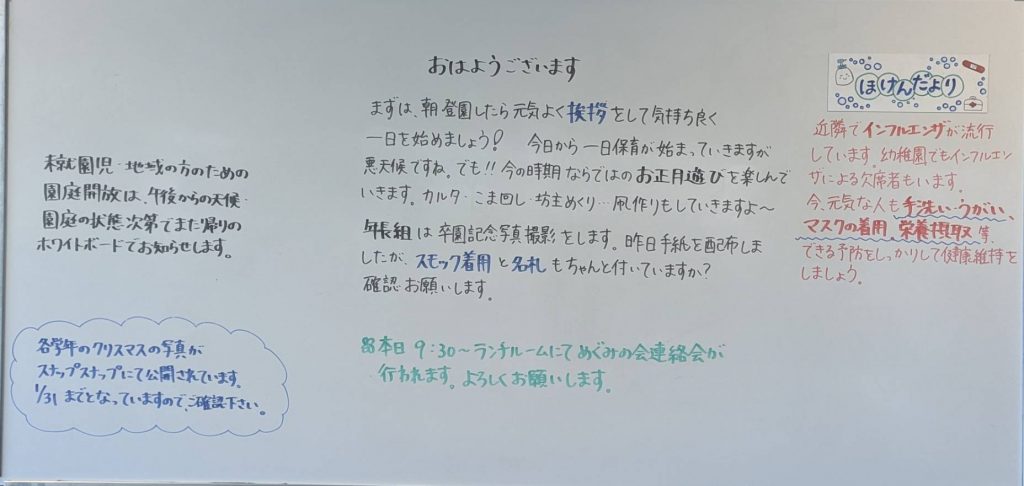 おはようございます
まずは、朝登園したら元気よく挨拶をして気持ち良く
一日を始めましょう! 今日から一日保育が始まっていきますが
悪天候ですね。でも!!今の時期ならではのお正月遊びを楽しんで
いきます。カルタ・こま回し・坊主めくり…凧作りもしていきますよ〜
年長組は卒園記念写真撮影をします。昨日手紙を配布しま
したが、スモック着用と名札もちゃんと付いていますか?
確認お願いします。
本日9:30〜ランチルームにてめぐみの会連絡会が
行われます。よろしくお願いします。
未就園児・地域の方のための
園庭開放は、午後からの天候・
園庭の状態次第でまた帰りの
ホワイトボードでお知らせします。
各学年のクリスマスの写真が
スナップスナップにて公開されています。
1/31までとなっていますので、ご確認下さい。
ほけんだより
近隣でインフルエンザが流行
しています。幼稚園でもインフルエン
ザによる欠席者もいます。
今、元気な人も手洗い・うがい、
マスクの着用、栄養摂取等、
できる予防をしっかりして健康維持を
しましょう。